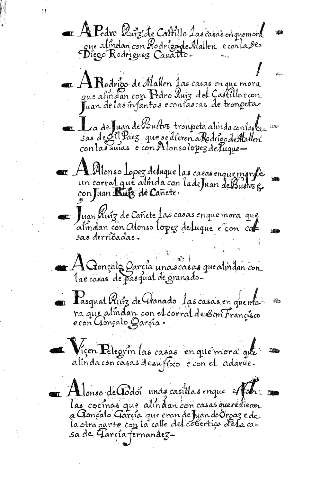 A Pedro Ruiz de Castillo las casas en que mora
que alindan con Rodrigo de Mallen e con la de
Diego Rodriguez
A Rodrigo de Mallen las casas en que mora
que alindan con Pedro Ruiz del Castillo e con
Juan de las infantas e con las cas de trompeta
La de Juan de Bustos trompeta alinda con las ca
sas de Gil Paez que se dieron a Rodrigo de Mallen
con las suias e con Alonso lopez de luque
A Alonso Lopez de luque las casas en que mora e
un corral que alinda con la de Juan de Bustos e
con Juan Ruiz de Cañete
Juan Ruiz de Cañete las casas en que mora que
alindan con Alonso lopez de luque e con ca
sas derribadas
A Gonçalo Garçia unas casas que alindan con
las casas de Pasqual de granado
Pasqual Ruiz de Granado las casas en que mo
ra que alindan con el corral de San Francisco
e con Gonçalo Garçia
Viçen Pelegrin las casas en que mora que
alinda con casas de su fixo e con el adarve
Alonso de Godoi unas casillas en que
las cocinas que alindan con casas que se dieron
a Gonçalo Garçia que eran de Juan de Orgaz e de
la otra parte con la calle del cobertiço de la ca
sa de Garçia fernandez